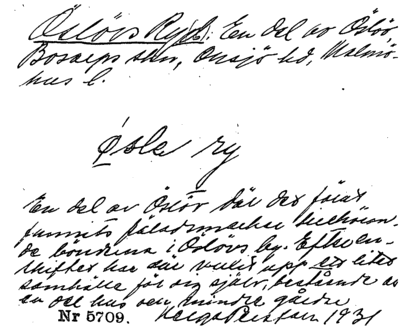 Öslövs Ryd. En del av Öslöv,
Bosarps skn, Onsjö hd, Malmö-
hus l.
Øsle ry
En del av Öslöv där det förut
funnits fäladsmarker tillhöran-
de bönderna i Öslövs by. Efter en-
skiftet har där vuxit upp ett litet
samhälle för sig själv, bestående av
en del hus och mindre gårdar
Nr 5709. Helge Persson 1931